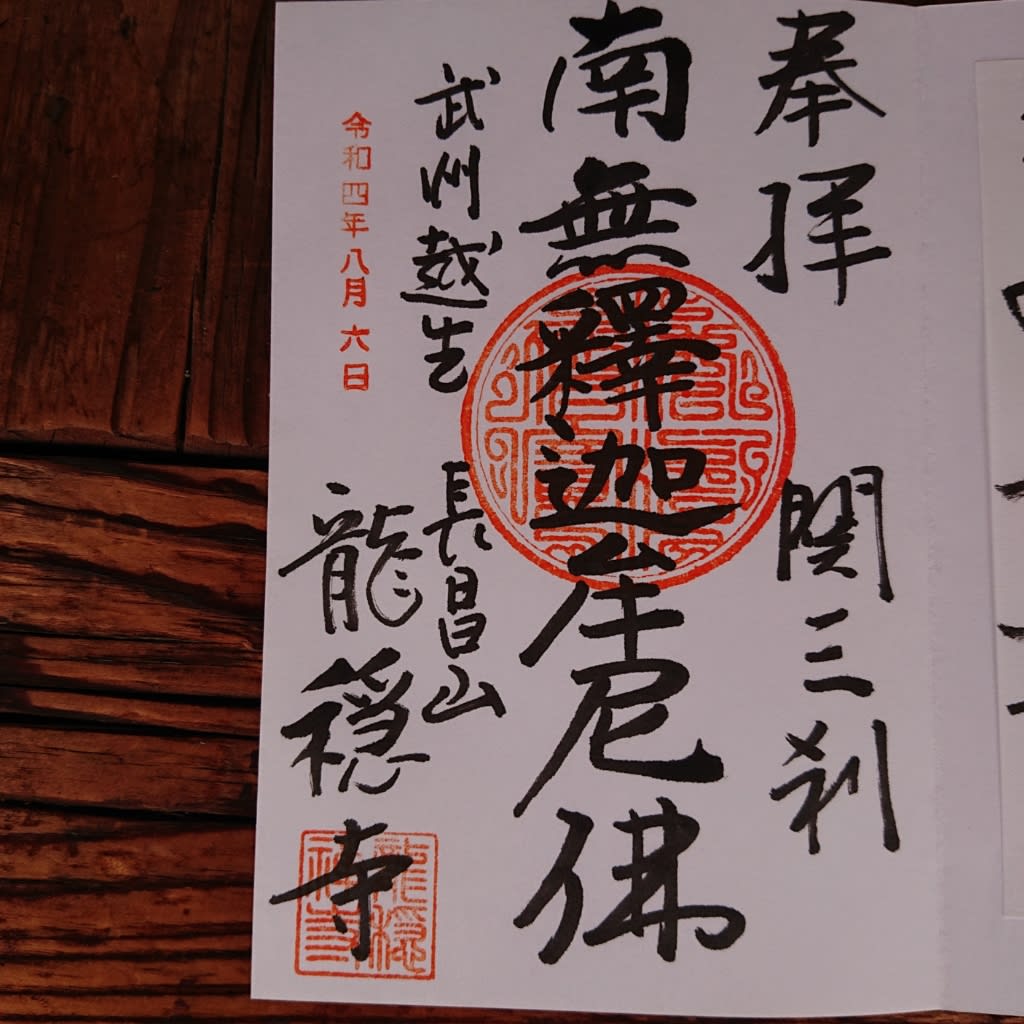 奉拝
関三刹
南無釋迦牟尼佛
武州越生
長昌山
龍穏寺
令和四年八月六日
龍穏禅寺